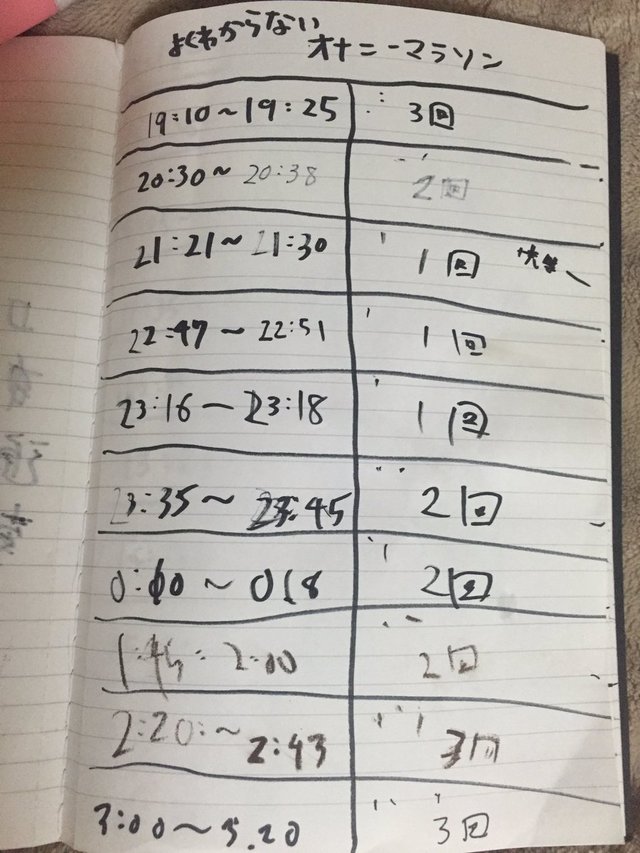 よくわからない
オナニーマラソン
19:10〜19:25 3回
20:30〜20:38 2回
21:21〜21:30 1回
22:47〜22:51 1回
23:16〜23:18 1回
23:35〜23:45 2回
0:10〜018 2回
1:45:2:00 2回
2:20:〜2:43 3回
3:00〜3.20 3回